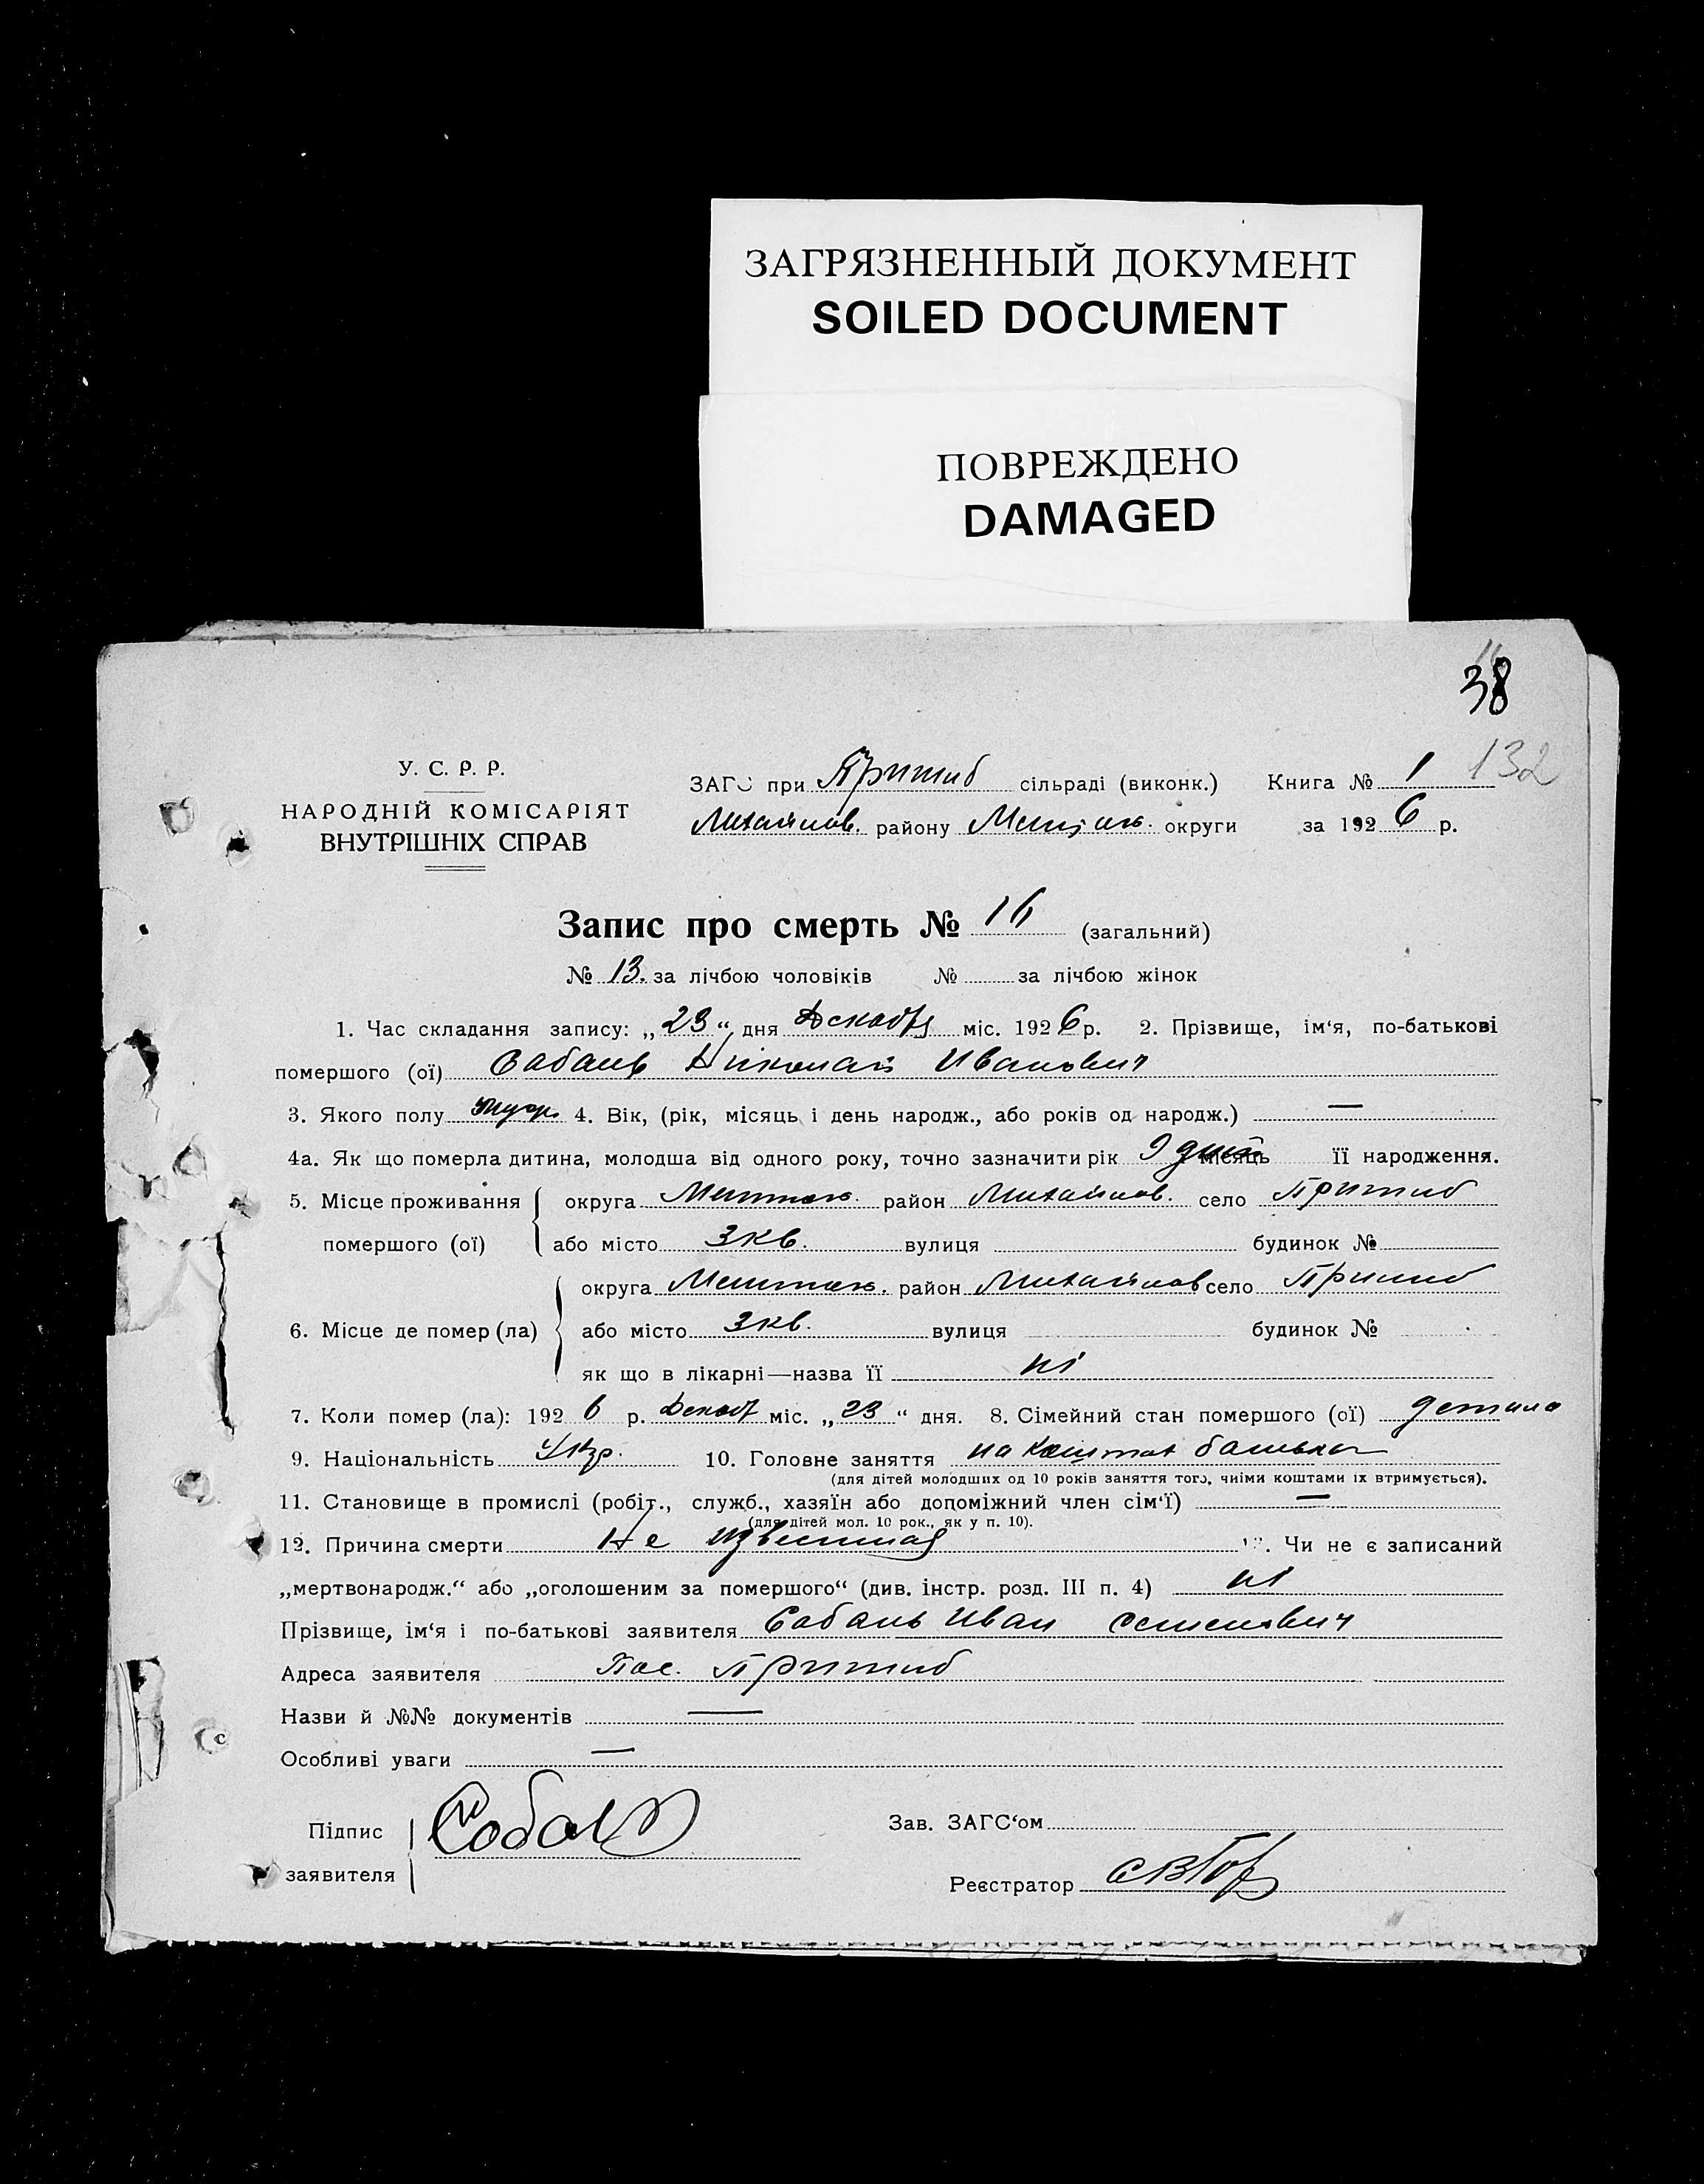 ЗАГРЯЗНЕННЫЙ ДОКУМЕНТ
SOILED DOCUMENT
ПОВРЕЖДЕНО
DAMAGED
38
У. С. Р. Р.
НАРОДНІЙ КОМІСАРІЯТ
ВНУТРІШНІХ СПРАВ
ЗАГС при Пришиб сільраді (виконк.) Книга № 1 132
Михайлов. району округи за 1926 р.
Запис про смерть № 16 (загальний)
№ 13. за лічбою чоловіків № за лічбою жінок
1. Час складання запису: „23“ дня Декабря міс. 1926 р. 2. Прізвище, ім‘я, по-батькові
помершого (ої) Сабань Николай Иванович
3. Якого полу муж. 4. Вік, (рік, місяць і день народж., або років од народж.) —
4а. Як що померла дитина, молодша від одного року, точно зазначити рік 9 дней місяць її народження.
5. Місце проживання округа Мелитоп. район Михайлов. село Пришиб
помершого (ої) або місто 3кв. вулиця будинок №
округа Мелитоп. район Михайлов село Пришиб
6. Місце де помер (ла) або місто 3кв. вулиця будинок №
як що в лікарні—назва її ні
7. Коли помер (ла): 1926 р. Декабр міс. „23“ дня. 8. Сімейний стан помершого (ої) детина
9. Національність Укр. 10. Головне заняття на коштах батька
(для дітей молодших од 10 років заняття того, чиїми коштами їх втримується).
11. Становище в промислі (робіт., служб., хазяїн або допоміжний член сім‘ї) —
(для дітей мол. 10 рок., як у п. 10).
12. Причина смерти Не известная 13. Чи не є записаний
„мертвонародж.“ або „оголошеним за помершого“ (див. інстр. розд. III п. 4) ні
Прізвище, ім‘я і по-батькові заявителя Сабань Иван Семенович
Адреса заявителя Пос. Пришиб
Назви й №№ документів —
Особливі уваги —
Підпис Зав. ЗАГС‘ом
заявителя
Реєстратор